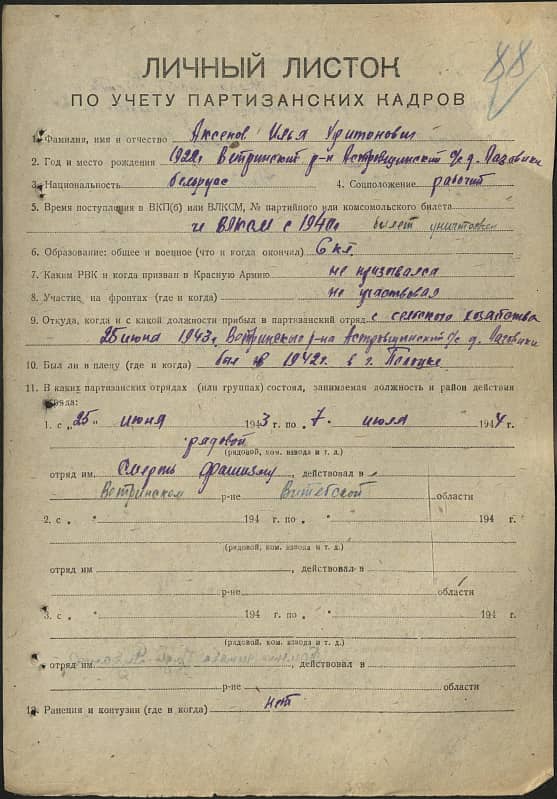 88
ЛИЧНЫЙ ЛИСТОК
ПО УЧЕТУ ПАРТИЗАНСКИХ КАДРОВ
1. Фамилия, имя и отчество Аксенов Илья Харитонович
2. Год и место рождения 1922г Ветринский р-н Астровщинский с/с д. Пазовики
3. Национальность белорус 4. Соцположение рабочий
5. Время поступления в ВКП(б) или ВЛКСМ, № партийного или комсомольского билета
чл ВЛКСМ с 1940г билет уничтожен
6. Образование: общее и военное (что и когда окончил) 6 кл.
7. Каким РВК и когда призван в Красную Армию не призывался
8. Участие на фронтах (где и когда) не участвовал
9. Откуда, когда и с какой должности прибыл в партизанский отряд с сельского хозяйства
25 июня 1943г. Ветринского р-на Астровщинский с/с д. Пазовики
10. Был ли в плену (где и когда) был в 1942г. в г. Полоцке
11. В каких партизанских отрядах (или группах) состоял, занимаемая должность и район действия
отряда:
1. с „25" июня 1943 г. по „7. июля 1944 г.
рядовой
(рядовой, ком. взвода и т. д.)
отряд им Смерть фашизму, действовал в
Ветринском р-не Витебской области
2. с „ " 194 г. по „ " 194 г.
(рядовой, ком. взвода и т. д.)
отряд им , действовал в
р-не области
3. с „ " 194 г. по „ " 194 г.
(рядовой, ком. взвода и т. д.)
отряд им , действовал в
р-не области
12. Ранения и контузии (где и когда) нет